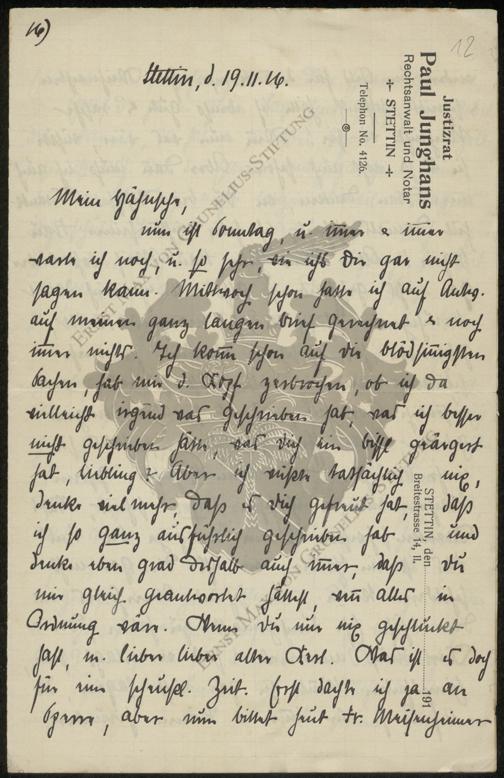 16)
12
Justizrat
Paul Junghans
Rechtsanwalt und Notar
✢ STETTIN ✢
Telephon No. 4126.
Stettin, d. 19.11.16.
Mein Hähnsche,
nun ist Sonntag, u. imer & imer
warte ich noch, u. so sehr, wie ichs Dir gar nicht
sagen kann. Mittwoch schon hatte ich auf Antw.
auf meinen ganz langen Brief gerechnet & noch
imer nichts. Ich kome schon auf die blödsinnigsten
Sachen, hab mir d. Kopf zerbrochen, ob ich da
vielleicht irgend was geschrieben hab, was ich besser
nicht geschrieben hätte, was dich ein bissl geärgert
hat, Liebling? Aber ich wüßte tatsächlich nix,
denke vielmehr, daß es dich gefreut hat, daß
ich so ganz ausführlich geschrieben hab und
denke eben grad deshalb auch imer, daß du
mir gleich geantwortet hättest, wenn alles in
Ordnung wäre. Wenn du nur nix geschluckt
hast, m. lieber lieber alter Kerl. Was ist es doch
für eine scheussl. Zeit. Erst dachte ich ja an
Sperre, aber nun bittet heut Fr. Meisenheimer
STETTIN, den 191
Breitestrasse 14, II.
ERNST MAX VON GRUNELIUS-STIFTUNG
ERNST MAX VON GRUNELIUS-STIFTUNG